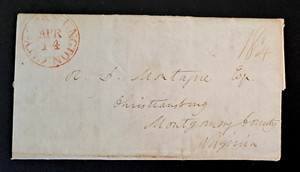 WASHINGTON CITY
APR
14
18¾
R. S. Montague Esq.
Christiansburg
Montgomery County
Virginia